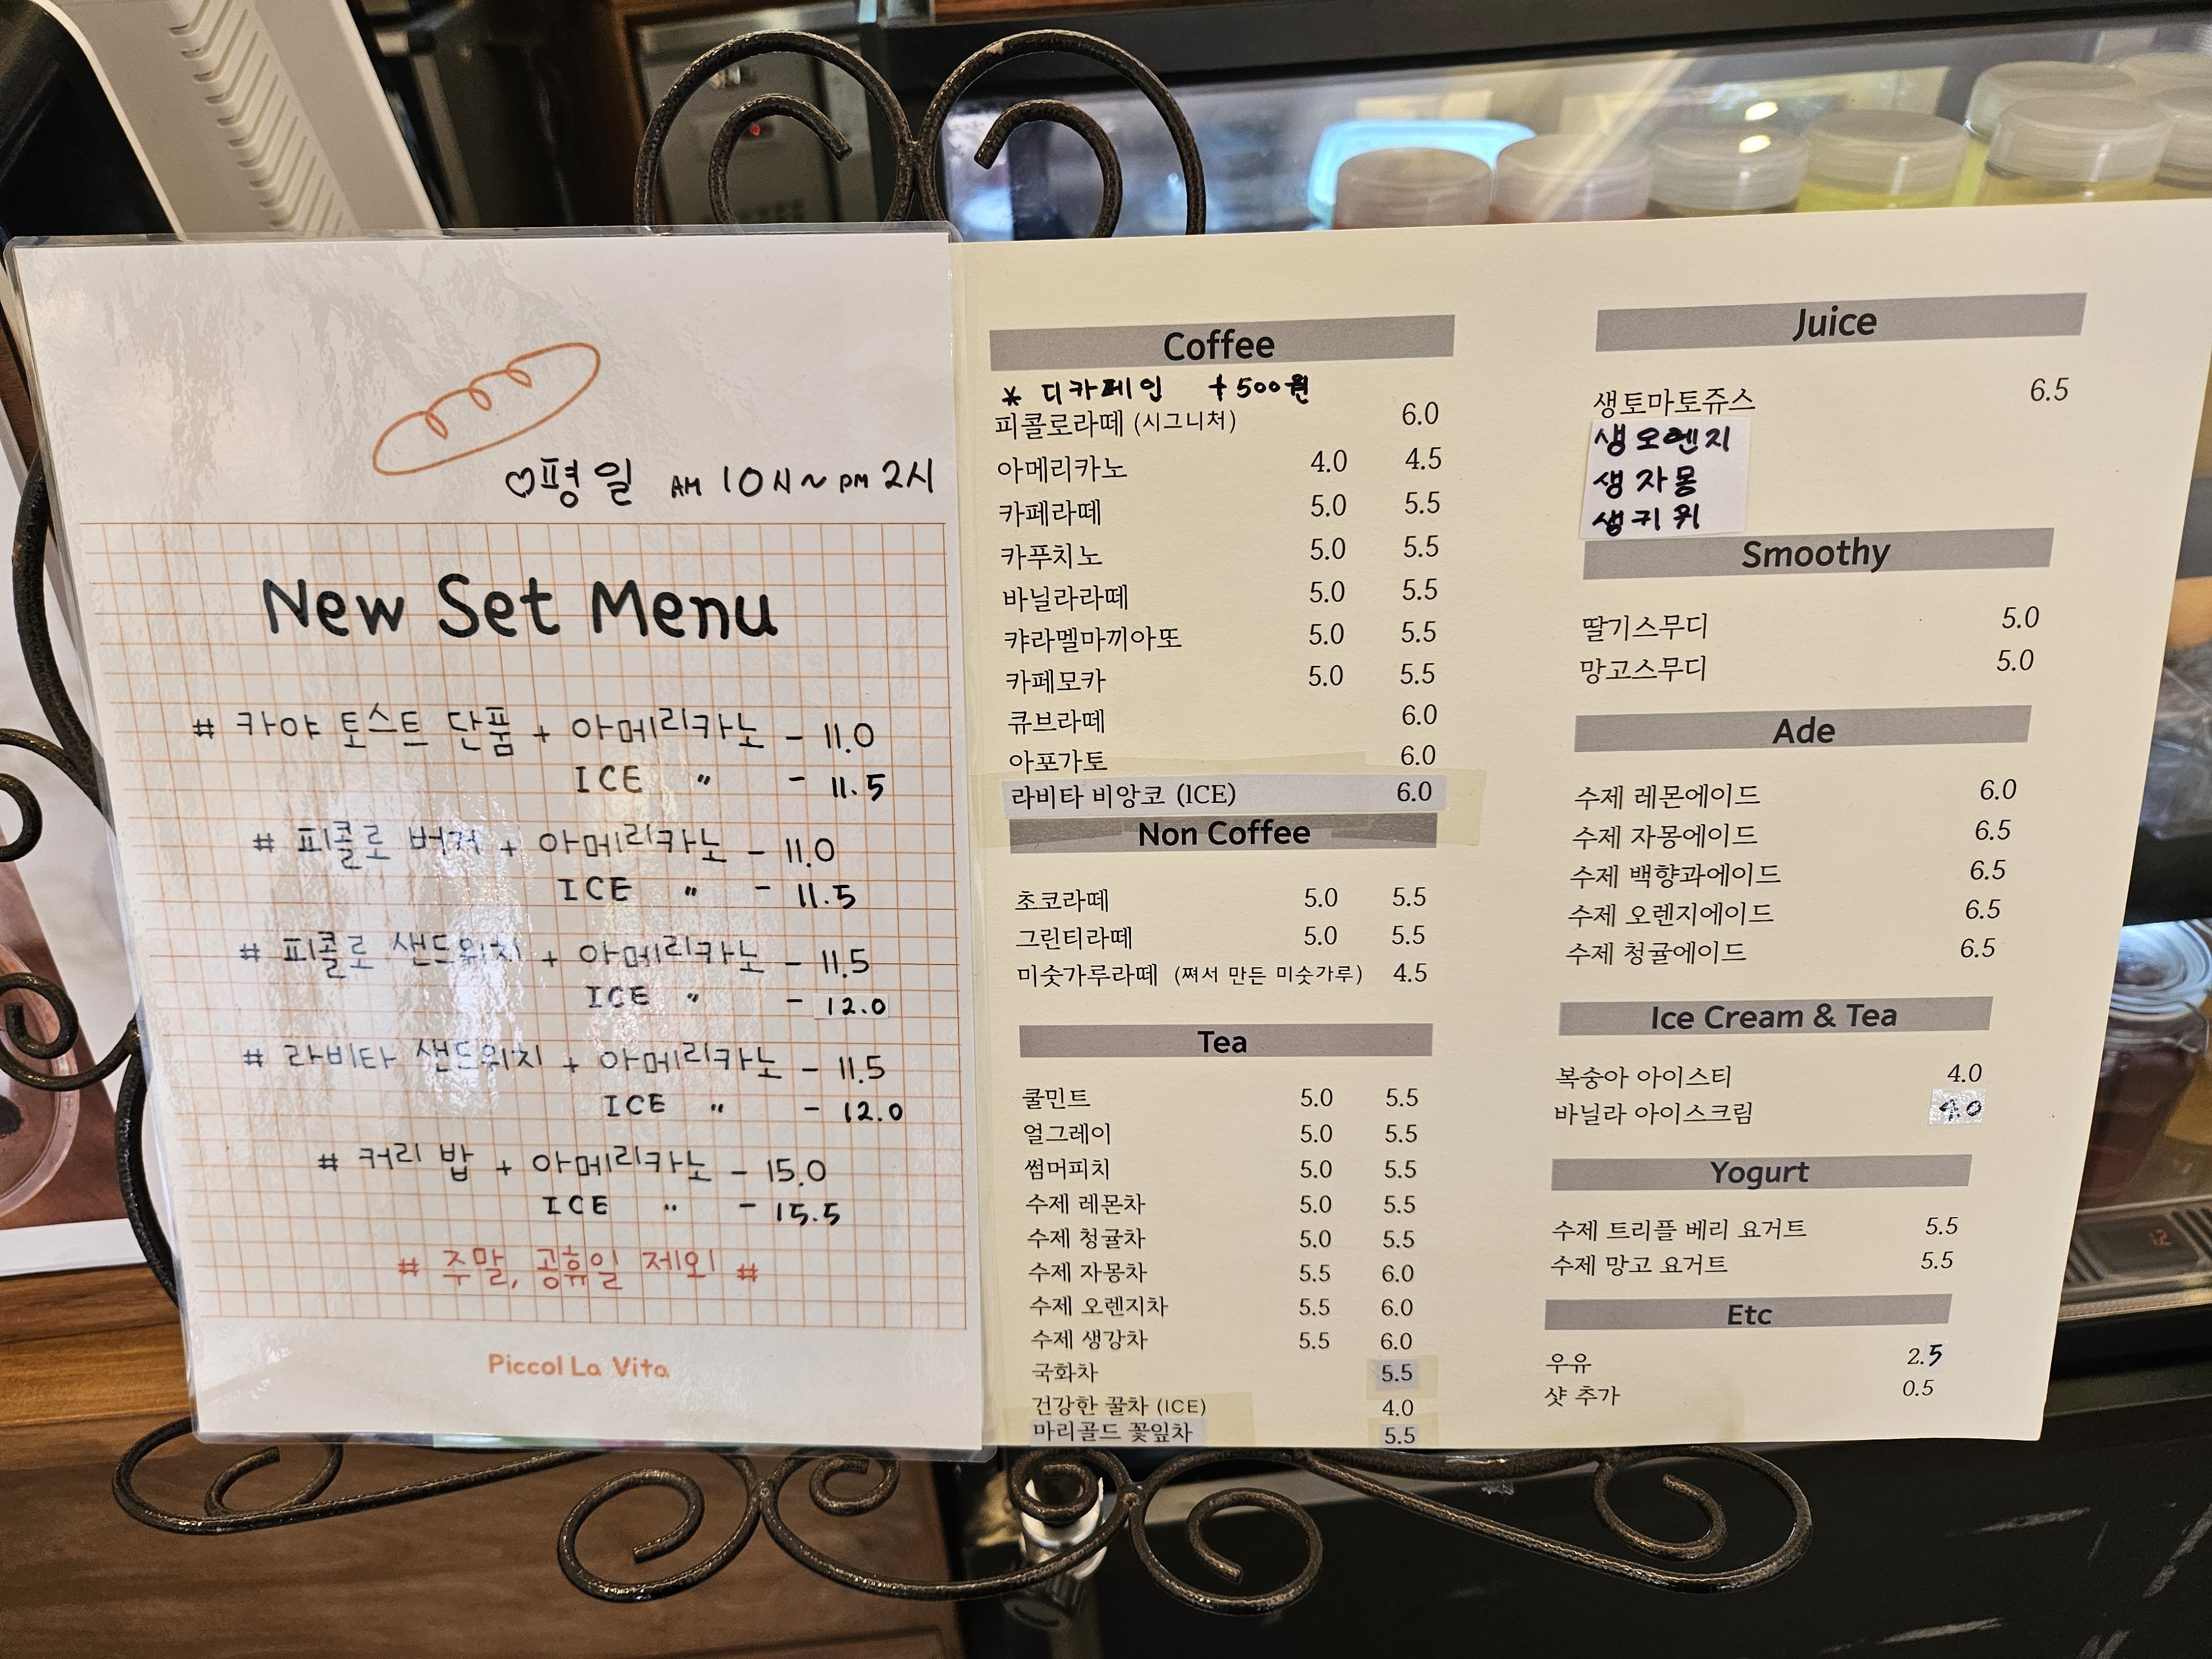 ♡평일 AM 10시~ PM 2시
New Set Menu
# 카야 토스트 단품 + 아메리카노 - 11.0
ICE 〃 - 11.5
# 피콜로 버거 + 아메리카노 - 11.0
ICE 〃 - 11.5
# 피콜로 샌드위치 + 아메리카노 - 11.5
ICE 〃 - 12.0
# 라비타 샌드위치 + 아메리카노 - 11.5
ICE 〃 - 12.0
# 커리 밥 + 아메리카노 - 15.0
ICE 〃 - 15.5
# 주말, 공휴일 제외 #
Piccol La Vita
Coffee
* 디카페인 +500원
피콜로라떼 (시그니처) 6.0
아메리카노 4.0 4.5
카페라떼 5.0 5.5
카푸치노 5.0 5.5
바닐라라떼 5.0 5.5
캬라멜마끼아또 5.0 5.5
카페모카 5.0 5.5
큐브라떼 6.0
아포가토 6.0
라비타 비앙코 (ICE) 6.0
Non Coffee
초코라떼 5.0 5.5
그린티라떼 5.0 5.5
미숫가루라떼 (쪄서 만든 미숫가루) 4.5
Tea
쿨민트 5.0 5.5
얼그레이 5.0 5.5
썸머피치 5.0 5.5
수제 레몬차 5.0 5.5
수제 청귤차 5.0 5.5
수제 자몽차 5.5 6.0
수제 오렌지차 5.5 6.0
수제 생강차 5.5 6.0
국화차 5.5
건강한 꿀차 (ICE) 4.0
마리골드 꽃잎차 5.5
Juice
생토마토쥬스 6.5
생오렌지
생자몽
생키위
Smoothy
딸기스무디 5.0
망고스무디 5.0
Ade
수제 레몬에이드 6.0
수제 자몽에이드 6.5
수제 백향과에이드 6.5
수제 오렌지에이드 6.5
수제 청귤에이드 6.5
Ice Cream & Tea
복숭아 아이스티 4.0
바닐라 아이스크림 4.0
Yogurt
수제 트리플 베리 요거트 5.5
수제 망고 요거트 5.5
Etc
우유 2.5
샷 추가 0.5